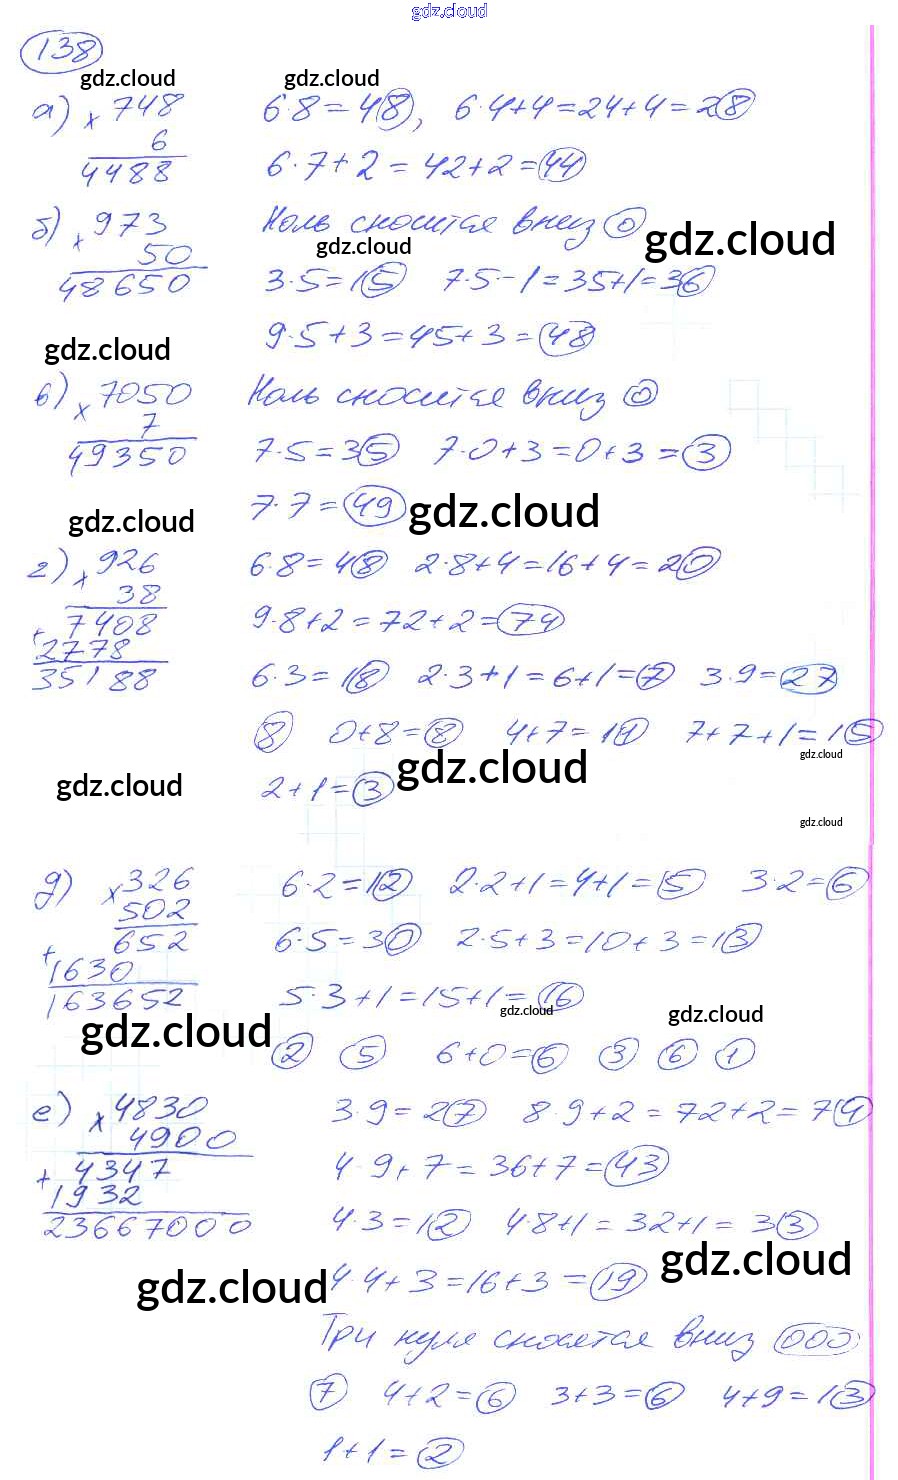 gdz.cloud
138
gdz.cloud gdz.cloud
а) × 748 6·8=48, 6·4+4=24+4=28
6
4488 6·7+2=42+2=44
б) × 973 Ноль сносится вниз 0 gdz.cloud
50 gdz.cloud
48650 3·5=15 7·5-1=35+1=36
9·5+3=45+3=48
gdz.cloud
в) × 7050 Ноль сносится вниз 0
7
49350 7·5=35 7·0+3=0+3=3
7·7=49 gdz.cloud
gdz.cloud
г) × 926 6·8=48 2·8+4=16+4=20
38
+ 7408 9·8+2=72+2=74
2778
35188 6·3=18 2·3+1=6+1=7 3·9=27
8 0+8=8 4+7=11 7+7+1=15
gdz.cloud
gdz.cloud gdz.cloud
2+1=3
gdz.cloud
д) × 326 6·2=12 2·2+1=4+1=5 3·2=6
502
+ 652 6·5=30 2·5+3=10+3=13
1630
163652 5·3+1=15+1=16
gdz.cloud gdz.cloud
gdz.cloud
2 5 6+0=6 3 6 1
е) × 4830 3·9=27 8·9+2=72+2=74
4900
+ 4347 4·9+7=36+7=43
1932
23667000 4·3=12 4·8+1=32+1=33
gdz.cloud
gdz.cloud 4·4+3=16+3=19
Три нуля сносятся вниз 000
7 4+2=6 3+3=6 4+9=13
1+1=2